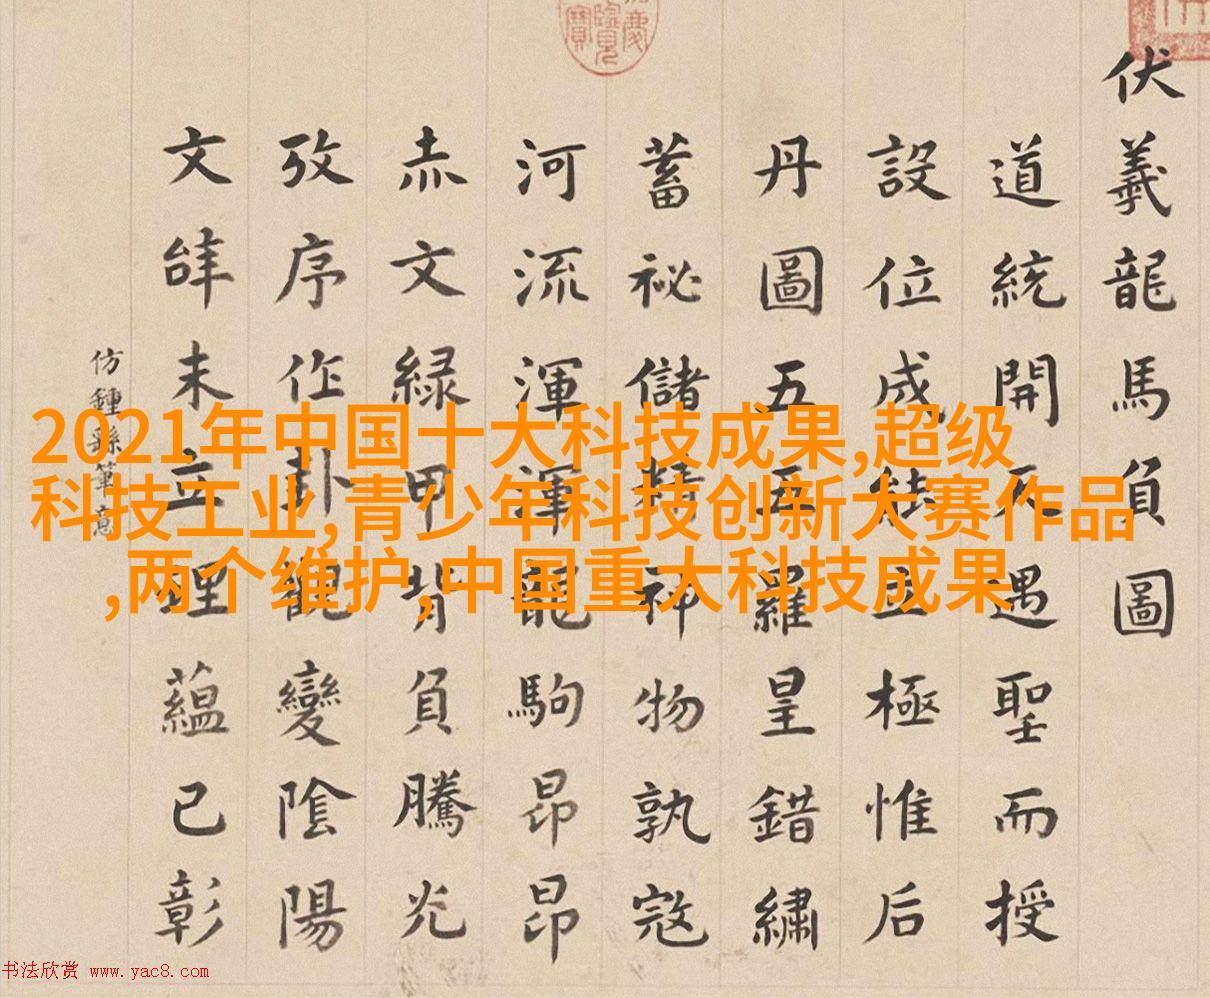 伏羲龍馬負圖
道統開天遇聖而授
設位成極惟后
丹圖五五羅皇錯繡
蓄祕儲精神物孰寇
河流渾渾龍駒昂昂
赤文緑甲背負騰光
攷序作卦觀變陰陽
文未立理蘊已彰
仿鍾繇筆意
慶覽寶
2021年中国十大科技成果,超级
科技工业,青少年科技创新大赛作品
,两个维护,中国重大科技成果
书法欣赏 www.yac8.com